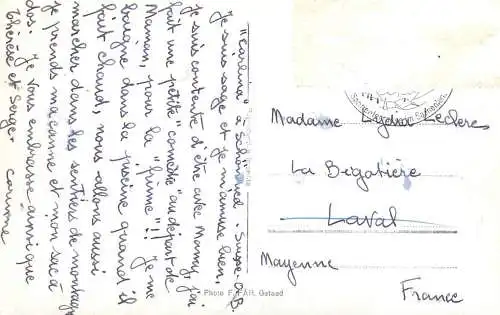 "Carlina" - Schönried - Suisse O.B.
Je suis sage et je m'amuse bien,
je suis contente d'être avec Mamy, j'ai
fait une petite "comédie" au départ de
Maman, pour la "frime"!! Je me
baigne dans la piscine quand il
fait chaud, nous allons aussi
marcher dans les sentiers de montagne
je prends ma canne et mon sac à
dos. Je vous embrasse ainsi que
Thérèse et Serge.
Corinne
Madame Leclerc
La Bigotière
Laval
Mayenne
France
Photo F. FÄH, Gstaad